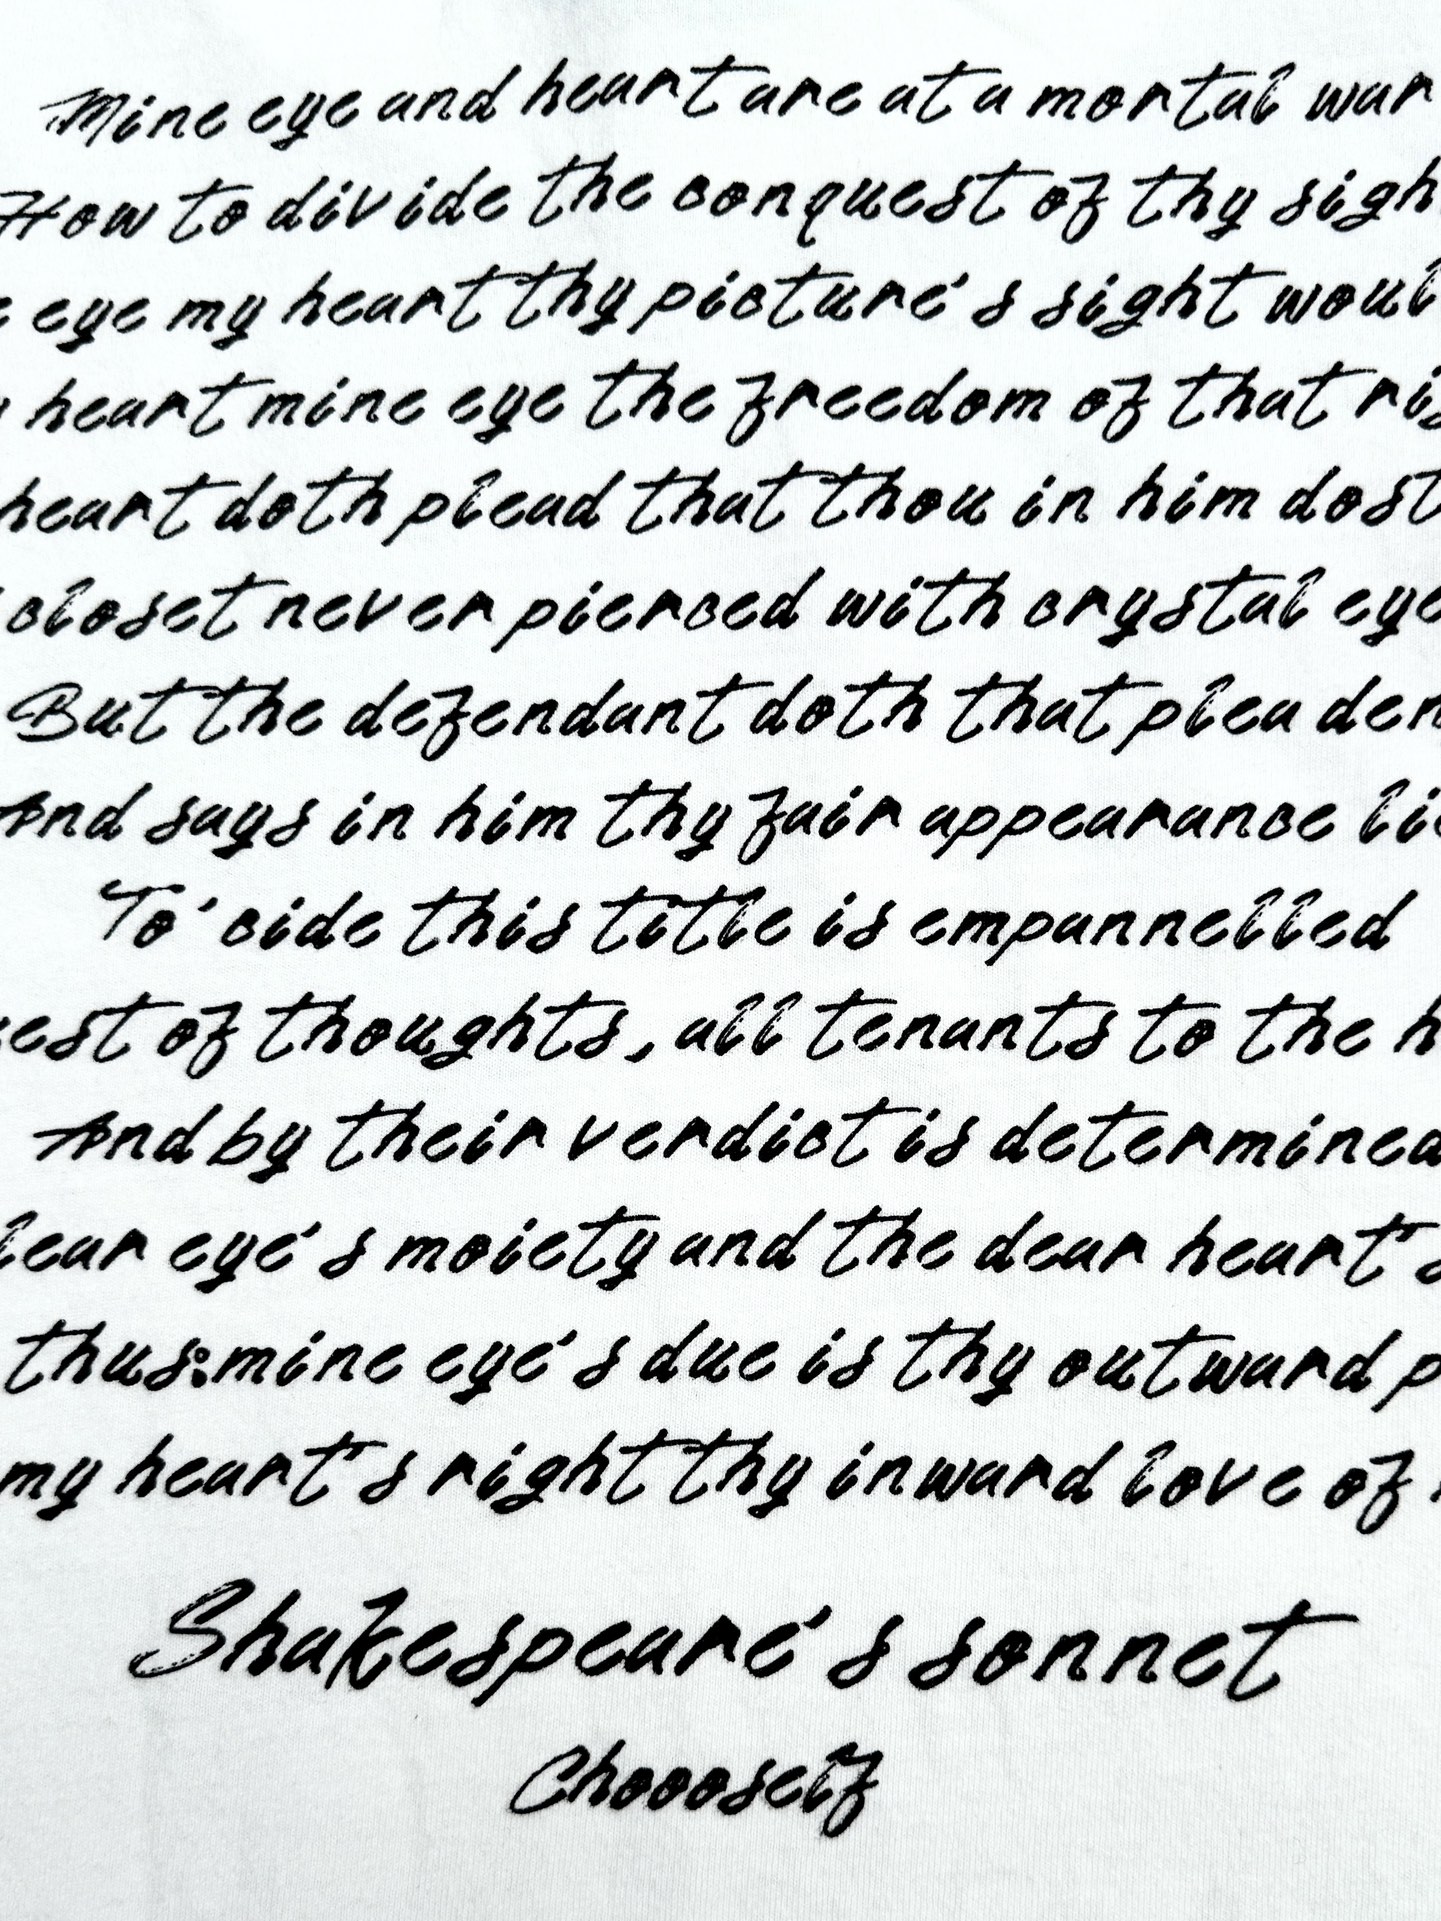 Mine eye and heart are at a mortal war
How to divide the conquest of thy sigh
eye my heart thy picture's sight woul
heart mine eye the freedom of that ri
heart doth plead that thou in him dost
closet never pierced with crystal eye
But the defendant doth that plea den
And says in him thy fair appearance lie
To' cide this title is empannelled
est of thoughts, all tenants to the h
And by their verdict is determined
lear eye's moiety and the dear heart's
thus:mine eye's due is thy outward p
my heart's right thy inward love of
Shakespeare's sonnet
Choooself